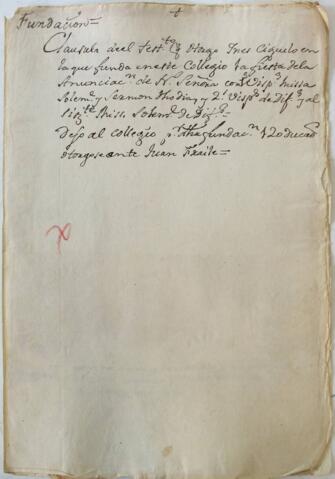 +
Fundación=
Clausula del Test.to q. otorgo Ines Ciguelo en
la que funda en este Collegio la fiesta de la
Anunciac.n de N. Señora con Visp.s Missa
Solem.e y Sermon tho dia y 2.s Visp.s de Dif.s y al
sig.te Miss. Solem.e de Dif.s
Dexo al collegio p.r dha fundac.n 120 ducad
otorgose ante Juan Fraile=